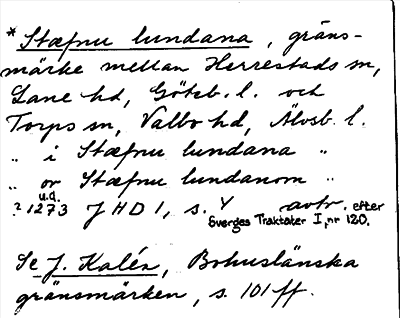 * Stæfnu lundana, gräns-
märke mellan Herrestads sn,
Lane hd, Göteb. l. och
Torps sn, Valbo hd, Älvsb. l.
„ i Stæfnu lundana „
„ or Stæfnu lundanom „
u.d.
? 1273 JHD 1, s. 4 avtr. efter
Sverges Traktater I, nr 120.
Se J. Kalén, Bohuslänska
gränsmärken, s. 101 ff.